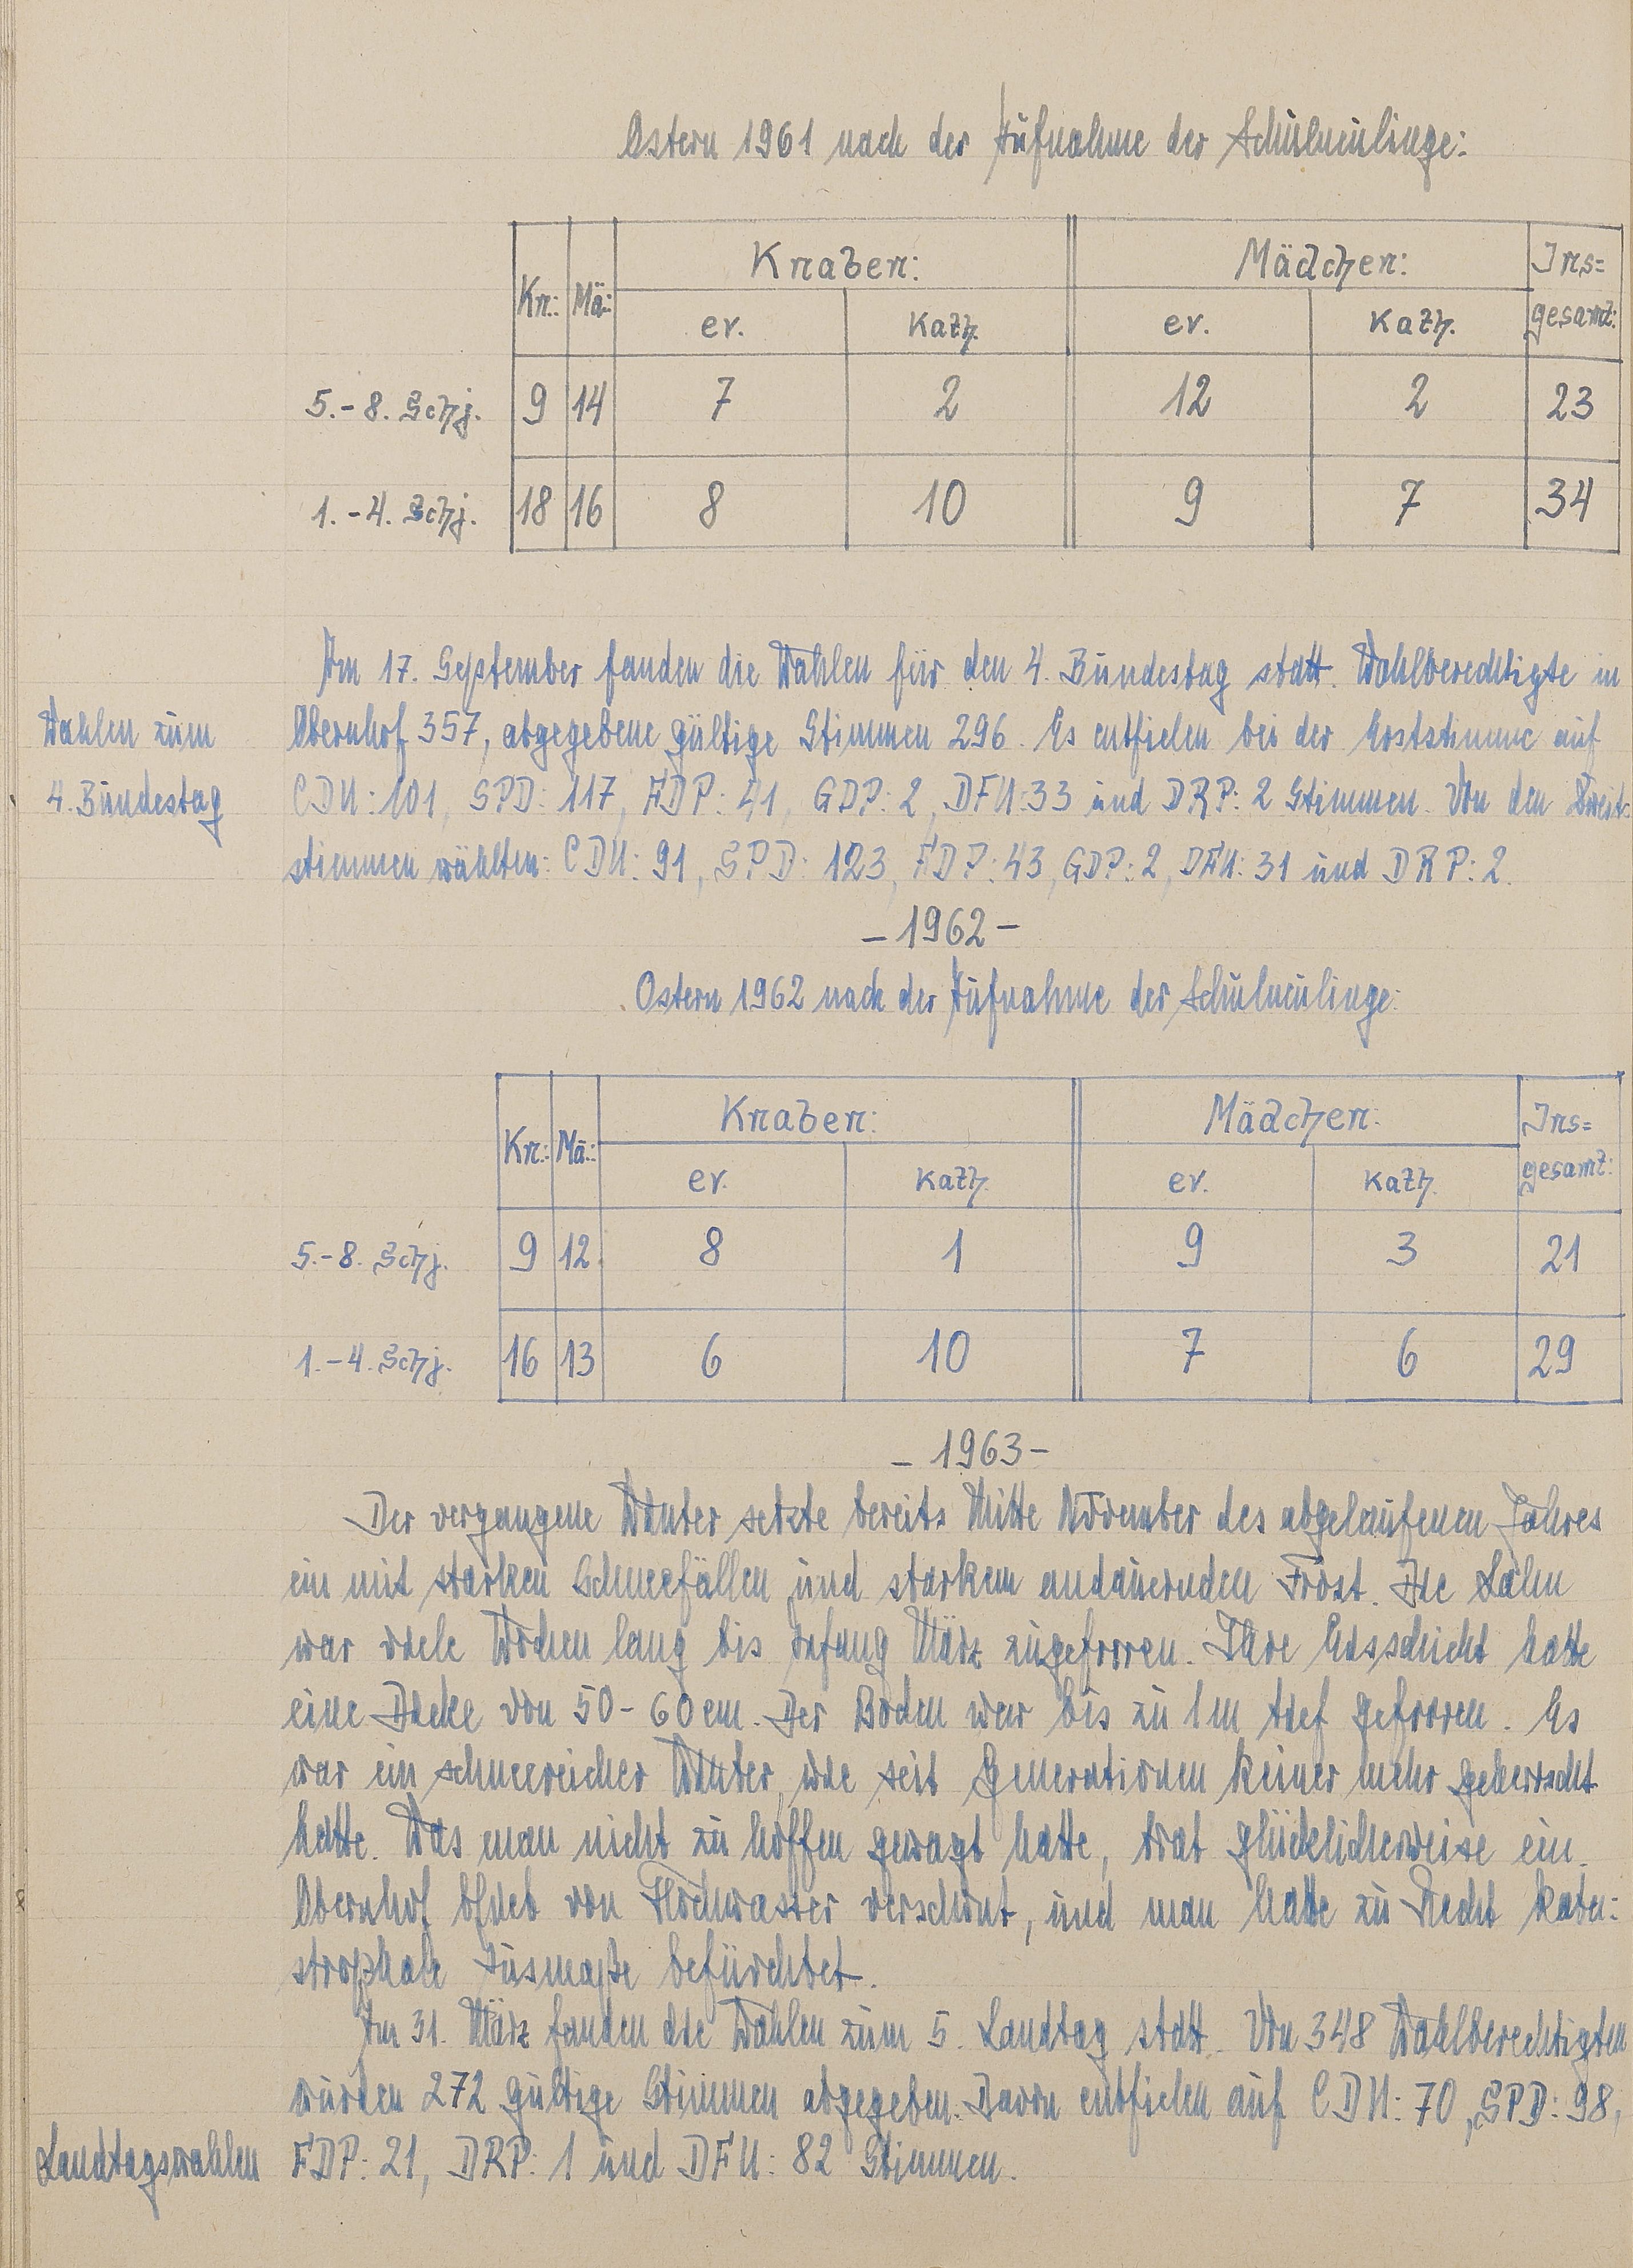 Ostern 1961 nach der Aufnahme der Schulneulinge:
Kn.: Mä.: Knaben: Mädchen: Ins=
gesamt:
ev. kath. ev. kath.
5.-8. Schj. 9 14 7 2 12 2 23
1.-4. Schj. 18 16 8 10 9 7 34
Am 17. September fanden die Wahlen für den 4. Bundestag statt. Wahlberechtigte in
Wahlen zum Obernhof 357, abgegebene gültige Stimmen 296. Es entfielen bei der Erststimme auf
4. Bundestag CDU: 101, SPD: 117, FDP: 41, GDP: 2, DFU: 33 und DRP: 2 Stimmen. Von den Zweit=
stimmen wählten: CDU: 91, SPD: 123, FDP: 43, GDP: 2, DFU: 31 und DRP: 2.
- 1962 -
Ostern 1962 nach der Aufnahme der Schulneulinge:
Kn.: Mä.: Knaben: Mädchen: Ins=
gesamt:
ev. kath. ev. kath.
5.-8. Schj. 9 12 8 1 9 3 21
1.-4. Schj. 16 13 6 10 7 6 29
- 1963 -
Der vergangene Winter setzte bereits Mitte November des abgelaufenen Jahres
ein mit starken Schneefällen und starkem andauernden Frost. Die Lahn
war viele Wochen lang bis Anfang März zugefroren. Ihre Eisschicht hatte
eine Dicke von 50-60 cm. Der Boden war bis zu 1 m tief gefroren. Es
war ein schneereicher Winter, wie seit Generationen keiner mehr geherrscht
hatte. Was man nicht zu hoffen gewagt hatte, trat glücklicherweise ein.
Obernhof blieb von Hochwasser verschont, und man hatte zu Recht kata=
strophale Ausmaße befürchtet.
Am 31. März fanden die Wahlen zum 5. Landtag statt. Von 348 Wahlberechtigten
wurden 272 gültige Stimmen abgegeben. Davon entfielen auf CDU: 70, SPD: 98,
Landtagswahlen FDP: 21, DRP: 1 und DFU: 82 Stimmen.